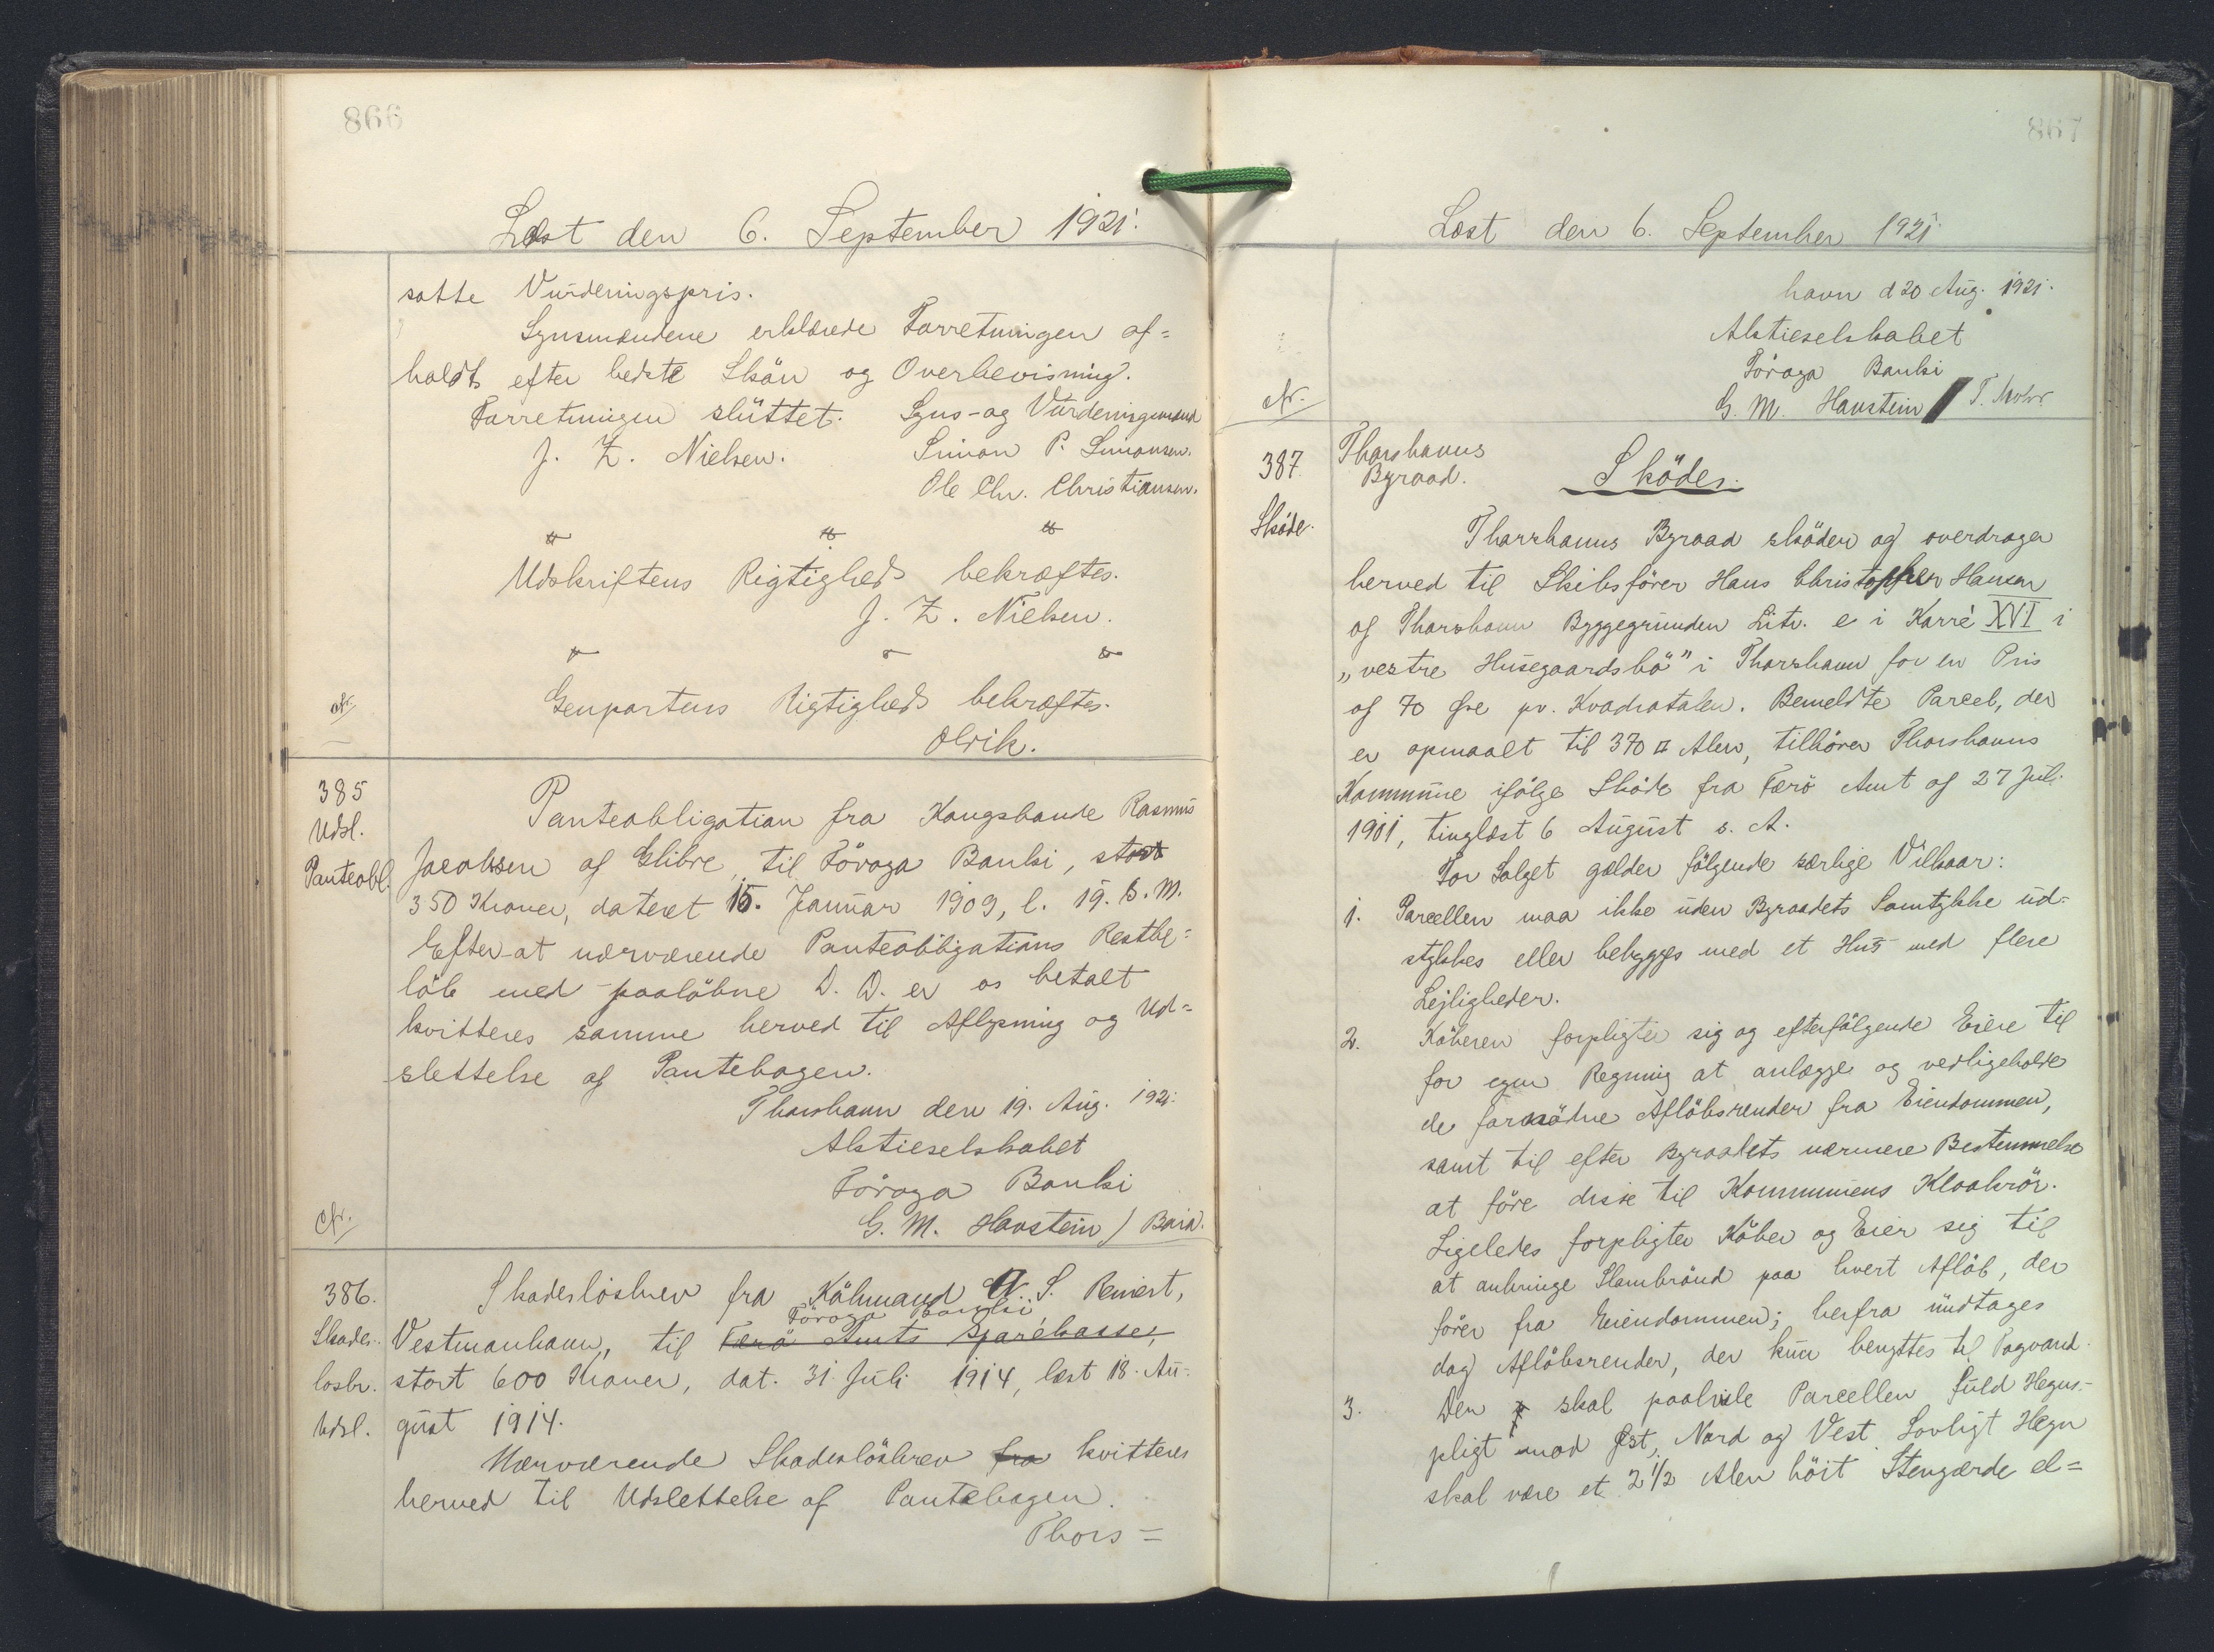 866
Læst den 6. September 1921.
satte Vurderingspris.
Synsmændene erklærede Forretningen af=
holdt efter bedste Skön og Overbevisning.
Forretningen slüttet. Syns- og Vurderingsmænd
J. Z. Nielsen. Simon P. Simonsen.
Ole Chr. Christiansen.
Udskriftens Rigtighed bekræftes.
J. Z. Nielsen.
Genpartens Rigtighed bekræftes.
Olrik.
385
Udsl.
Panteobl.
Panteobligation fra Kongsbonde Rasmüs
Jacobsen af Glibre, til Föroya Banki, stort
350 Kroner, dateret 15. Janüar 1909, l. 19. s. M.
Efter at nærværende Panteobligations Restbe=
löb med paalöbne D. O. er os betalt
kvitteres samme herved til Aflysning og Ud=
slettelse af Pantebogen.
Thorshavn den 19. Aug. 1921.
Aktieselskabet
Föroya Banki
G. M. Havstein /
386.
Skades-
losbr.
Udsl.
Skadeslösbrev fra Köbmand S. Reinert,
Föroya Banki
Vestmanhavn, til Færö Amts Sparekasse,
stort 600 Kroner, dat. 31 Juli 1914, læst 18. Aü-
güst 1914.
Nærværende Skadeslösbrev fra kvitteres
herved til Udslettelse af Pantebogen.
Thors=
867
Læst den 6. September 1921.
havn d 20 Aug. 1921.
Aktieselskabet
Föroya Banki
G. M. Havstein / T. Mohr
387.
Sköde.
Thorshavns
Byraad.
Sköde.
Thorshavns Byraad sköder og overdrager
herved til Skibsförer Hans Christopher Hansen
af Thorshavn Byggegrunden Litr. e i Karré XVI i
„vestre Hüsegaardsbö" i Thorshavn for en Pris
af 70 Øre pr. Kvadratalen. Bemeldte Parcel, der
er opmaalt til 370 □ Alen, tilhörer Thorshavns
Kommüne ifölge Sköde fra Færö Amt af 27 Juli
1911, tinglæst 6 Aügüst s. A.
For Salget gælder fölgende særlige Vilkaar:
1. Parcellen maa ikke üden Byraadets Samtykke üd-
stykkes eller bebygges med et Hüs med flere
Lejligheder.
2. Köberen forpligter sig og efterfölgende Eiere til
for egen Regning at anlægge og vedligeholde
de fornödne Aflöbsrender fra Eiendommen,
samt til efter Byraadets nærmere Bestemmelse
at före disse til Kommunens Kloakrör.
Ligeledes forpligter Köber og Eier sig til
at anbringe Slambrönd paa hvert Aflöb, der
förer fra Eiendommen; herfra ündtages
dog Aflöbsrender, der kün benyttes til Tagvand.
3. Den skal paahvile Parcellen füld Hegns-
pligt mod Øst, Nord og Vest. Lovligt Hegn
skal være et 2 1/2 Alen höit Stengærde el=